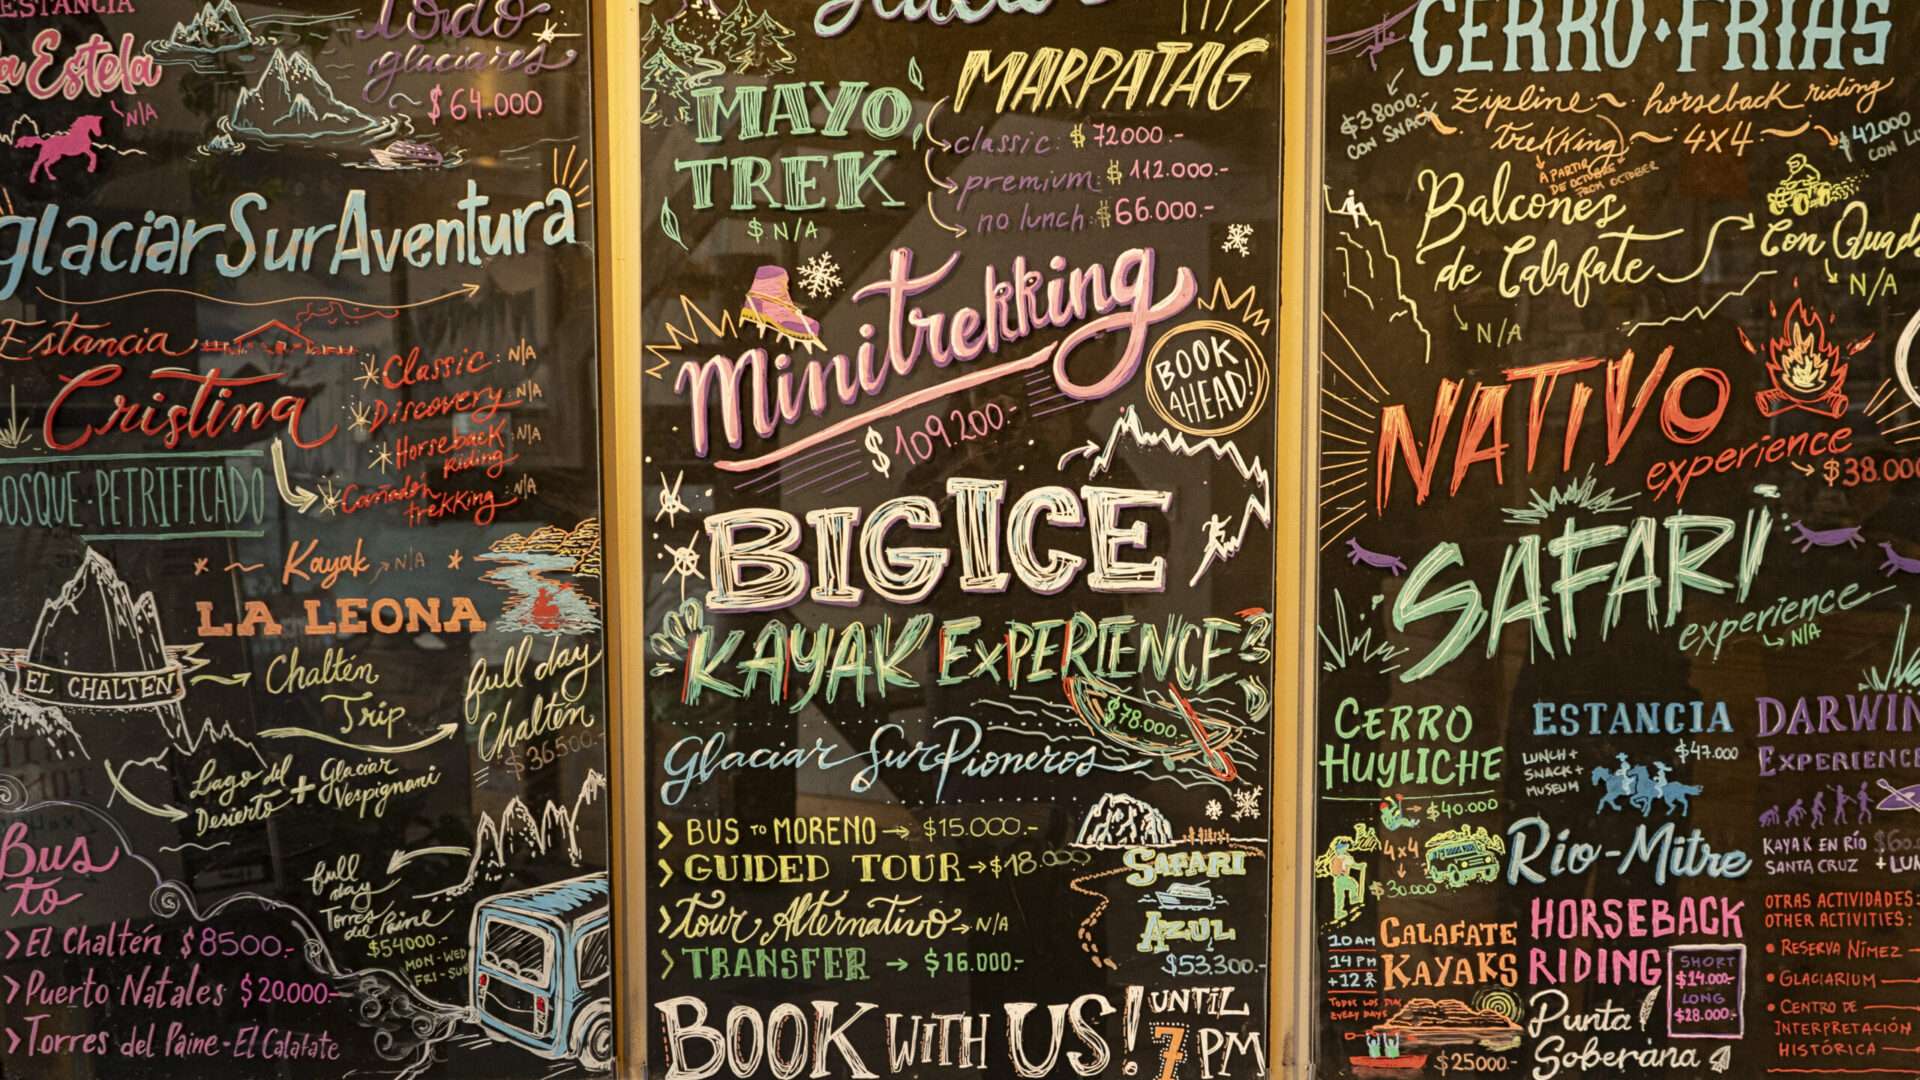 ESTANCIA
La Estela
N/A
Todo
glaciares
$64.000
glaciar Sur Aventura
Estancia
Cristina
Classic: N/A
Discovery: N/A
Horseback Riding: N/A
Cañadón trekking: N/A
BOSQUE·PETRIFICADO
Kayak N/A
LA LEONA
EL CHALTEN
Chaltén
Trip
full day
Chaltén
$36500.-
Lago del Desierto + Glaciar Vespignani
Bus
to
El Chaltén $8500.-
Puerto Natales $20.000.-
Torres del Paine - El Calafate
full
day
Torres
del Paine
$54000.-
MON-WED
FRI-SUN
MAYO
TREK
$ N/A
MARPATAG
classic: $72000.-
premium: $112.000.-
no lunch: $66.000.-
Minitrekking
BOOK
AHEAD!
$109.200.-
BIG ICE
KAYAK EXPERIENCE
$78.000.-
Glaciar Sur Pioneros
BUS TO MORENO → $15.000.-
GUIDED TOUR → $18.000
Tour Alternativo → N/A
TRANSFER → $16.000.-
SAFARI
AZUL
$53.300.-
BOOK WITH US!
UNTIL
7 PM
CERRO·FRIAS
$38000.-
CON SNACK
zipline ~ horseback riding
trekking ~ 4x4 ~
$42000
CON LU
A PARTIR
DE OCTUBRE
FROM OCTOBER
Balcones
de Calafate
N/A
Con Quad
N/A
NATIVO
experience
$38.000
SAFARI
experience
N/A
CERRO
HUYLICHE
$40.000
4x4
$30.000
ESTANCIA
LUNCH +
SNACK +
MUSEUM
$47.000
Rio-Mitre
DARWIN
EXPERIENCE
KAYAK EN RÍO
SANTA CRUZ
+ LUN
CALAFATE
KAYAKS
10 AM
14 PM
+12
TODOS LOS DIAS
EVERY DAYS
$25000.-
HORSEBACK
RIDING
SHORT
$14.000.-
LONG
$28.000.-
Punta
Soberana
OTRAS ACTIVIDADES:
OTHER ACTIVITIES:
• RESERVA NÍMEZ
• GLACIARIUM
• CENTRO DE
INTERPRETACIÓN
HISTÓRICA